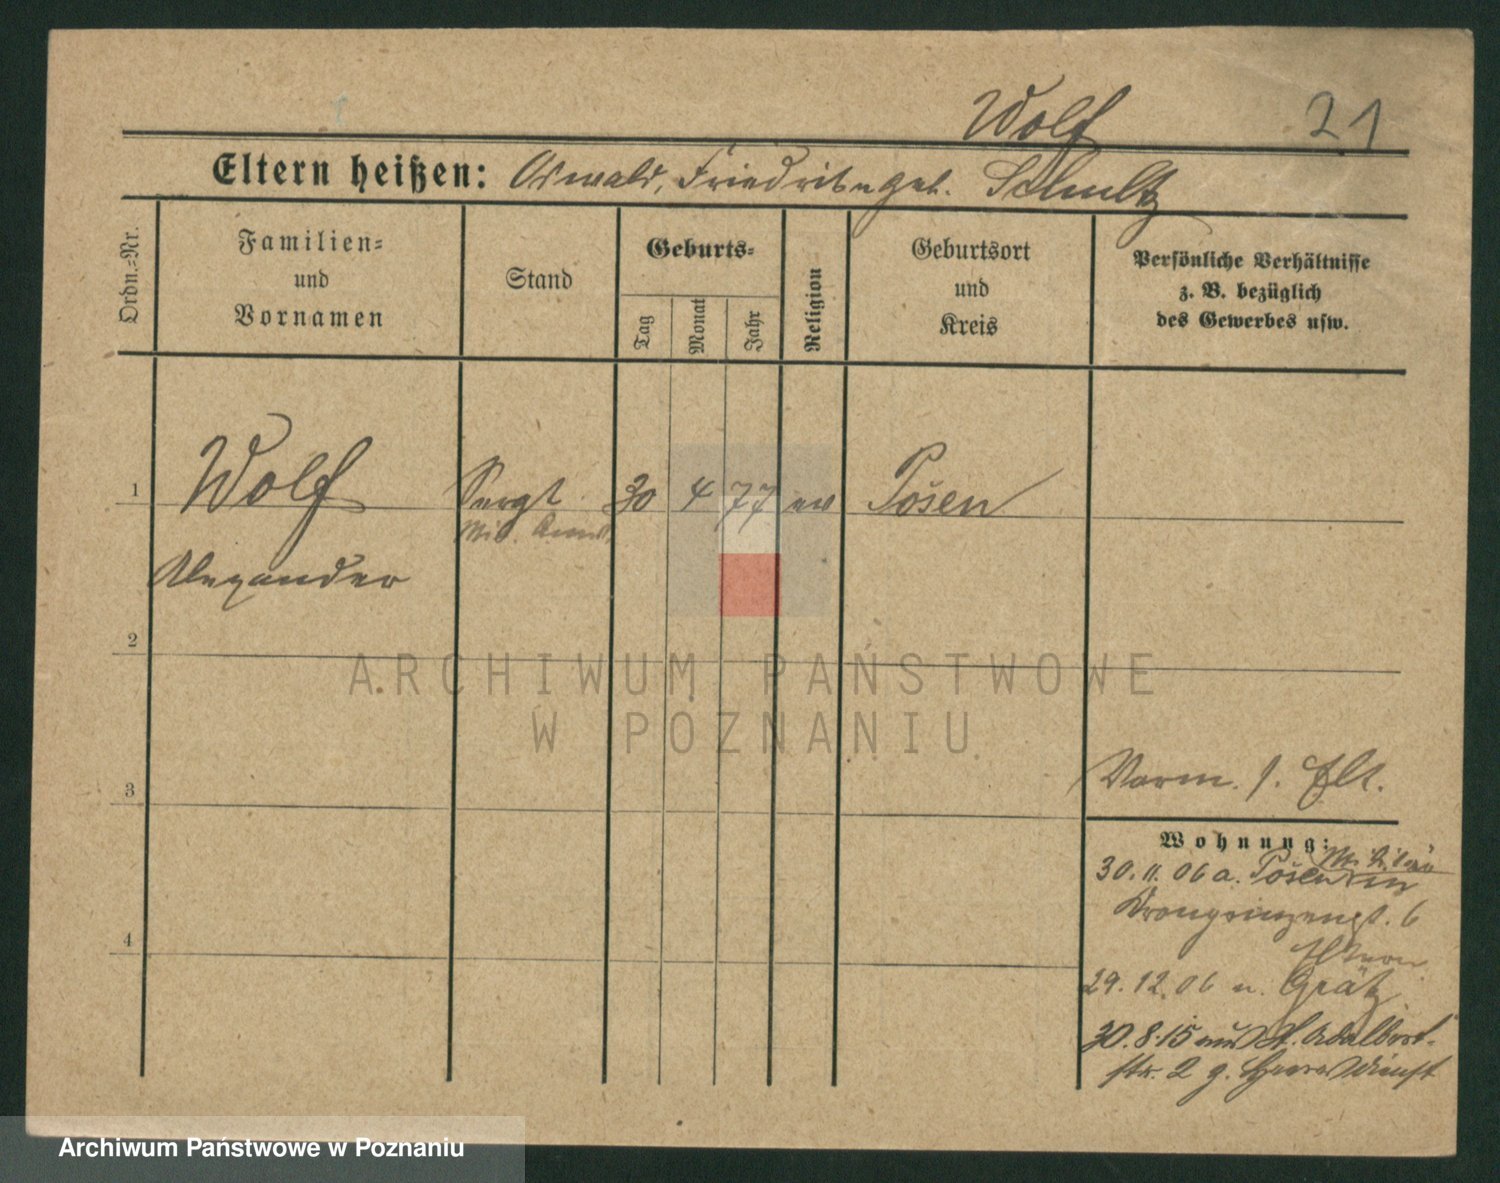 Wolf 21
Eltern heißen: Oswald, Friedrike geb. Schultz
Ordn.=Nr.
Familien=
und
Vornamen
Stand
Geburts=
Tag
Monat
Jahr
Religion
Geburtsort
und
Kreis
Persönliche Verhältnisse
z. B. bezüglich
des Gewerbes usw.
1 Wolf Sergt 30 4 77 ev Posen
Mil.
Alexander
2
ARCHIWUM PAŃSTWOWE
W POZNANIU
3
Verm. s. Elt.
Wohnung:
30.11.06 a. Posen
Kronprinzenst. 6
4
29.12.06 n. Grätz
30.8.15 St. Adalbert-
str. 2 z. Heeresdienst
Archiwum Państwowe w Poznaniu